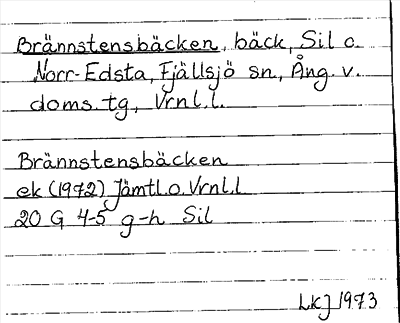 Brännstensbäcken, bäck, Sil o.
Norr-Edsta, Fjällsjö sn, Ång. v.
doms.tg, Vrnl.l.
Brännstensbäcken
ek (1972) Jämtl.o.Vrnl.l
20 G 4-5 g-h Sil
LKJ 1973